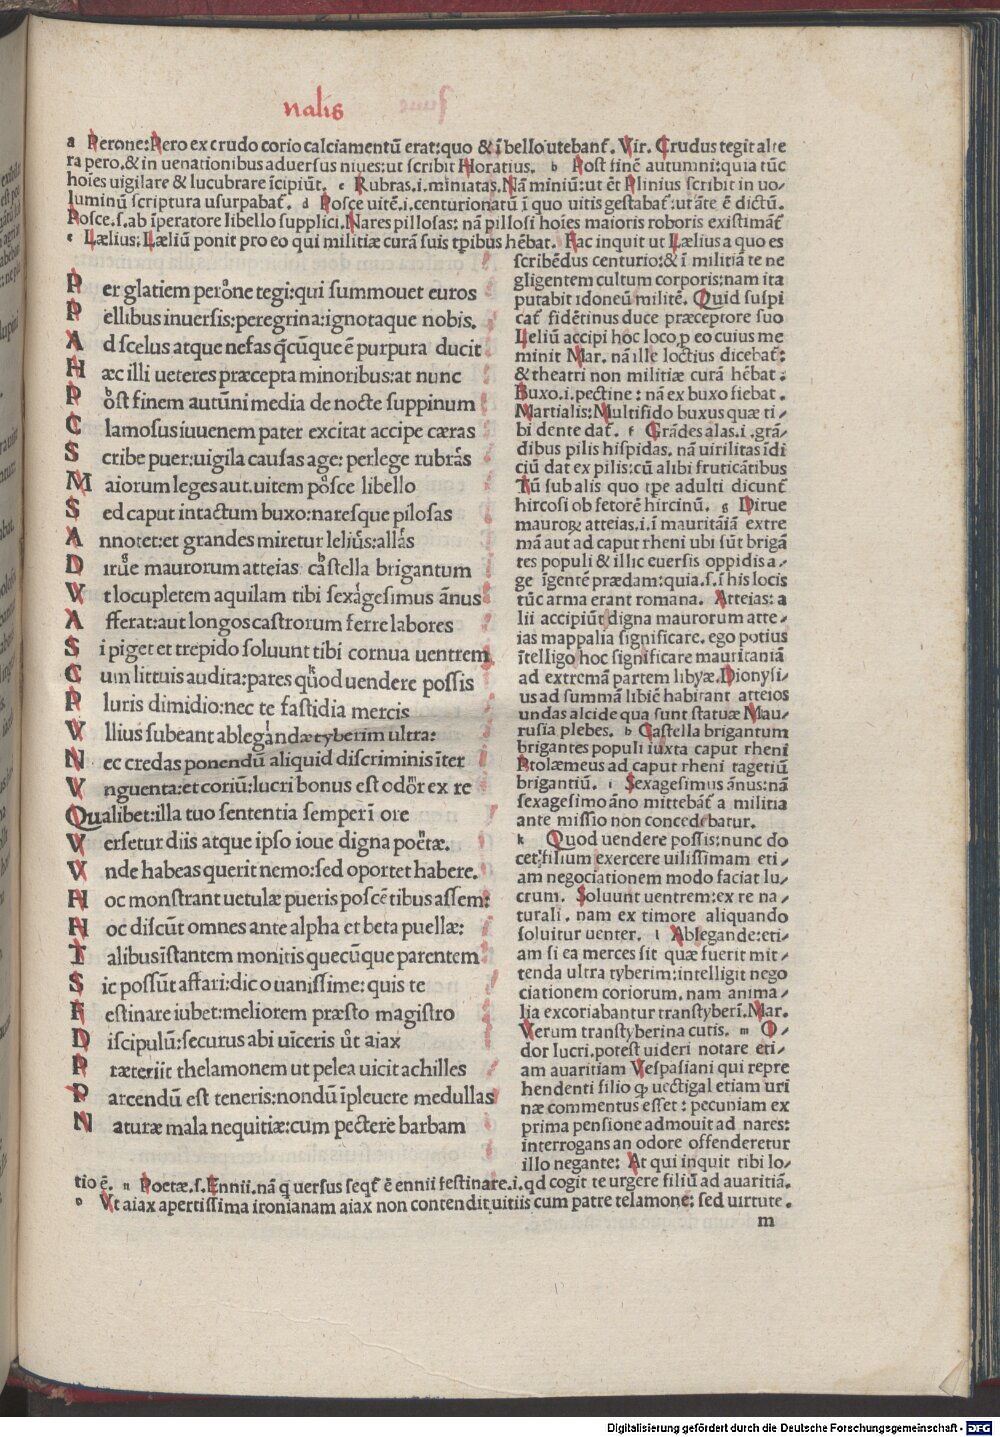 nalis
a Perone:Pero ex crudo corio calciamentū erat:quo & ī bello utebant᷑. Vir. Crudus tegit alte
ra pero.& in uenationibus aduersus niues:ut scribit Horatius. b Post finē autumni:quia tūc
hoīes uigilare & lucubrare īcipiūt. c Rubras.i.miniatas.Nā miniū:ut ēt Plinius scribit in uo-
luminū scriptura usurpabat᷑. d Posce uitē.i.centurionatū ī quo uitis gestabat᷑:ut āte ē dictū.
Posce.s.ab īperatore libello supplici.Nares pillosas: nā pillosi hoīes maioris roboris existimāt᷑
e Lælius:Læliū ponit pro eo qui militiæ curā suis tp̄ibus hēbat. Fac inquit ut Lælius a quo es
P er glatiem perone tegi:qui summouet euros
P ellibus inuersis:peregrina:ignotaque nobis.
A d scelus atque nefas q̄cūque ē purpura ducit
H æc illi ueteres præcepta minoribus:at nunc
P ost finem autūni media de nocte suppinum
C lamosus iuuenem pater excitat accipe cæras
S cribe puer:uigila causas age: perlege rubras
M aiorum leges aut.uitem posce libello
S ed caput intactum buxo:naresque pilosas
A nnotet:et grandes miretur lelius:allas
D irue maurorum atteias castella brigantum
V t locupletem aquilam tibi sexagesimus ānus
A fferat:aut longos castrorum ferre labores
S i piget et trepido soluunt tibi cornua uentrem
C um littuis audita:pares quod uendere possis
P luris dimidio:nec te fastidia mercis
V llius subeant ablegandæ tyberim ultra:
N ec credas ponendū aliquid discriminis īter
V nguenta:et coriū:lucri bonus est odor ex re
Qualibet:illa tuo sententia semper ī ore
V ersetur diis atque ipso ioue digna poetæ.
V nde habeas querit nemo:sed oportet habere.
H oc monstrant uetulæ pueris poscētibus assem:
H oc discūt omnes ante alpha et beta puellæ:
T alibus īstantem monitis quecūque parentem
S ic possūt affari:dic o uanissime: quis te
F estinare iubet:meliorem præsto magistro
D iscipulū:securus abi uīceris ut aiax
P ræteriit thelamonem ut pelea uicit achilles
P arcendū est teneris:nondū īpleuere medullas
N aturæ mala nequitiæ:cum pectere barbam
scribēdus centurio:& ī militiā te ne
gligentem cultum corporis:nam ita
putabit idoneū militē. Quid suspi
cat᷑ fidētinus duce præceptore suo
Leliū accipi hoc loco ꝓ eo cuius me
minit Mar. nā ille loctius dicebat᷑:
& theatri non militiæ curā hēbat.
Buxo.i.pectine: nā ex buxo fiebat.
Martialis:Multifido buxus quæ ti-
bi dente dat᷑. f Grādes alas.i.grā-
dibus pilis hispidas. nā uirilitas īdi
ciū dat ex pilis:cū alibi fruticātibus
Tū sub alis quo tp̄e adulti dicunt᷑
hircosi ob fetorē hircinū. g Dirue
mauroꝝ atteias.i.ī mauritāiā extre
mā aut ad caput rheni ubi sūt brigā
tes populi & illic euersis oppidis a-
ge īgentē prædam:quia.s.ī his locis
tūc arma erant romana. Atteias: a
lii accipiūt digna maurorum atte-
ias mappalia significare. ego potius
ītelligo hoc significare mauritaniā
ad extremā partem libyæ.Dionysi-
us ad summā libiē habitant atteios
undas alcide qua sunt statuæ Mau-
rusia plebes. h Castella brigantum
brigantes populi iuxta caput rheni
Ptolæmeus ad caput rheni tagetiū
brigantiū. i Sexagesimus ānus:nā
sexagesimo āno mittebāt᷑ a militia
ante missio non concedebatur.
k Quod uendere possis:nunc do
cet:filium exercere uilissimam eti-
am negociationem modo faciat lu-
crum. Soluunt uentrem:ex re na-
turali. nam ex timore aliquando
soluitur uenter. l Ablegande:eti-
am si ea merces sit quæ fuerit mit-
tenda ultra tyberim:intelligit nego
ciationem coriorum. nam anima-
lia excoriabantur transtyberī.Mar.
Verum transtyberina cutis. m O-
dor lucri.potest uideri notare eti-
am auaritiam Vespasiani qui repre
hendenti filio ꝙ uectigal etiam uri
næ commentus esset: pecuniam ex
prima pensione admouit ad nares:
interrogans an odore offenderetur
illo negante: At qui inquit tibi lo-
tio ē. n Poetæ.s.Ennii.nā q uersus seqt᷑ ē ennii festinare.i.qd cogit te urgere filiū ad auaritiā.
o Vt aiax apertissima ironianam aiax non contendit uitiis cum patre telamone: sed uirtute.
m
Digitalisierung gefördert durch die Deutsche Forschungsgemeinschaft - DFG